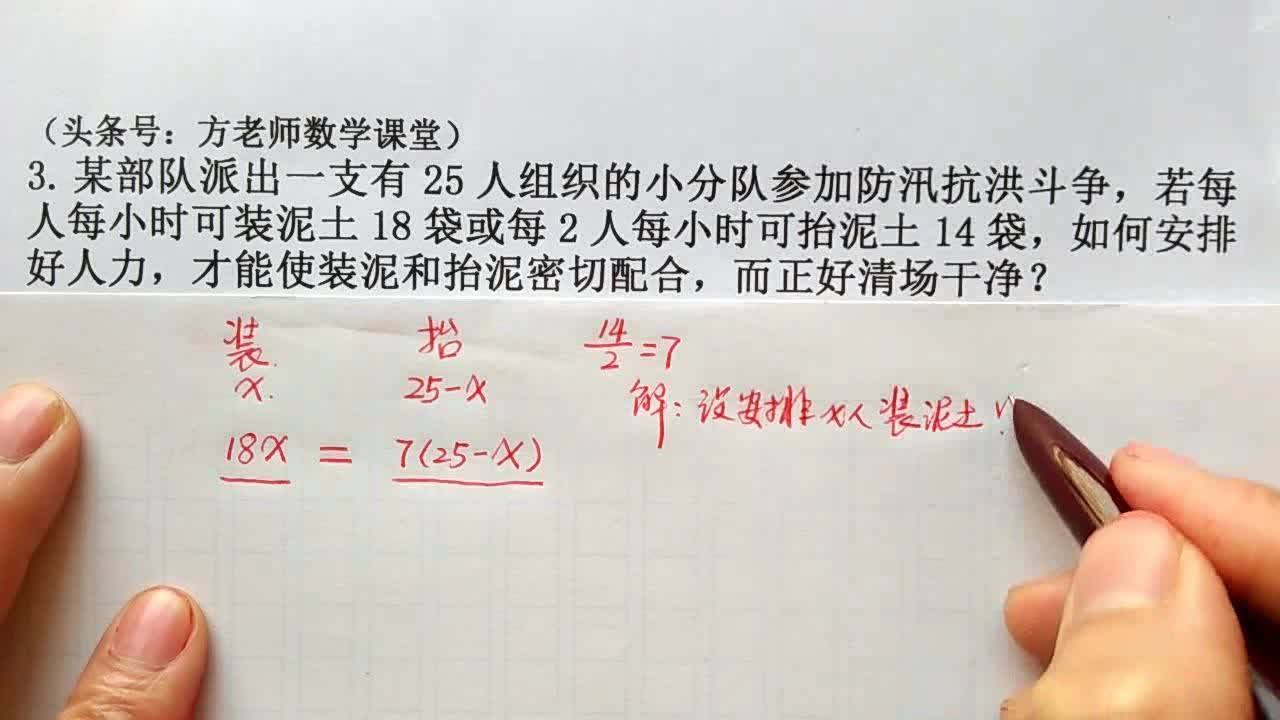 （头条号：方老师数学课堂）
3. 某部队派出一支有 25 人组织的小分队参加防汛抗洪斗争，若每
人每小时可装泥土 18 袋或每 2 人每小时可抬泥土 14 袋，如何安排
好人力，才能使装泥和抬泥密切配合，而正好清场干净？
装 抬 14/2=7
x. 25-x 解：设安排x人装泥土
18x = 7(25-x)